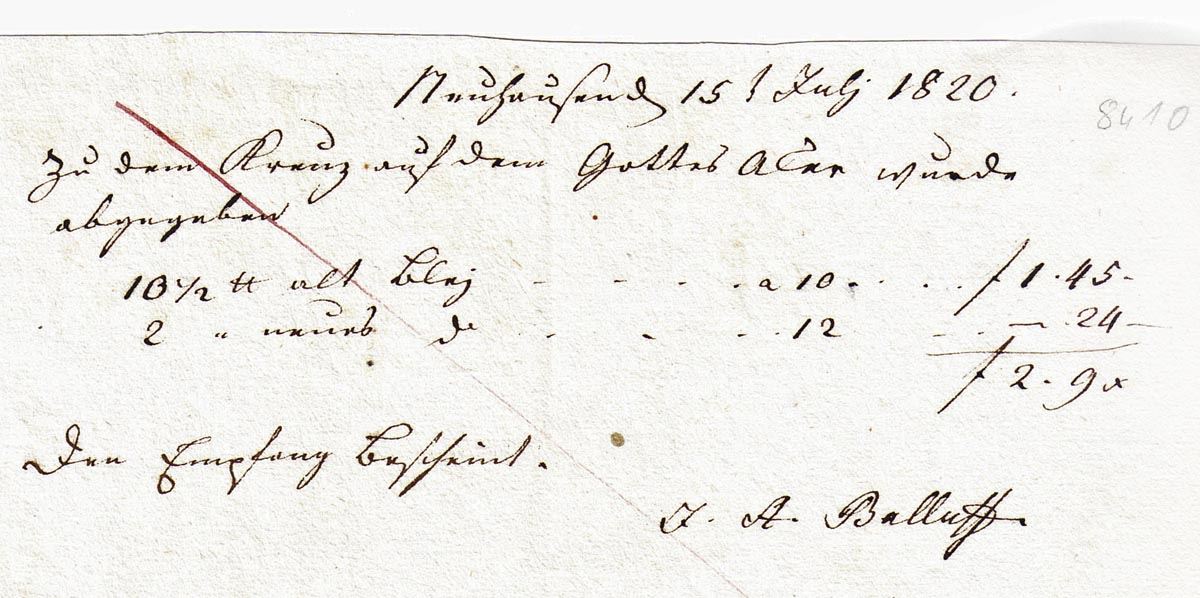 Neuhausen d 15 t Julj 1820.
8410
Zu dem Kreuz auf dem Gottes Aker wurde
abgegeben
10 1/2 ℔ alt Bleÿ - - - . a 10 . . . . f 1 . 45 -
2 " neues do . - . . 12 - . . — . 24 —
f 2 . 9 x
Den Empfang bescheint.
J. A. Balluff